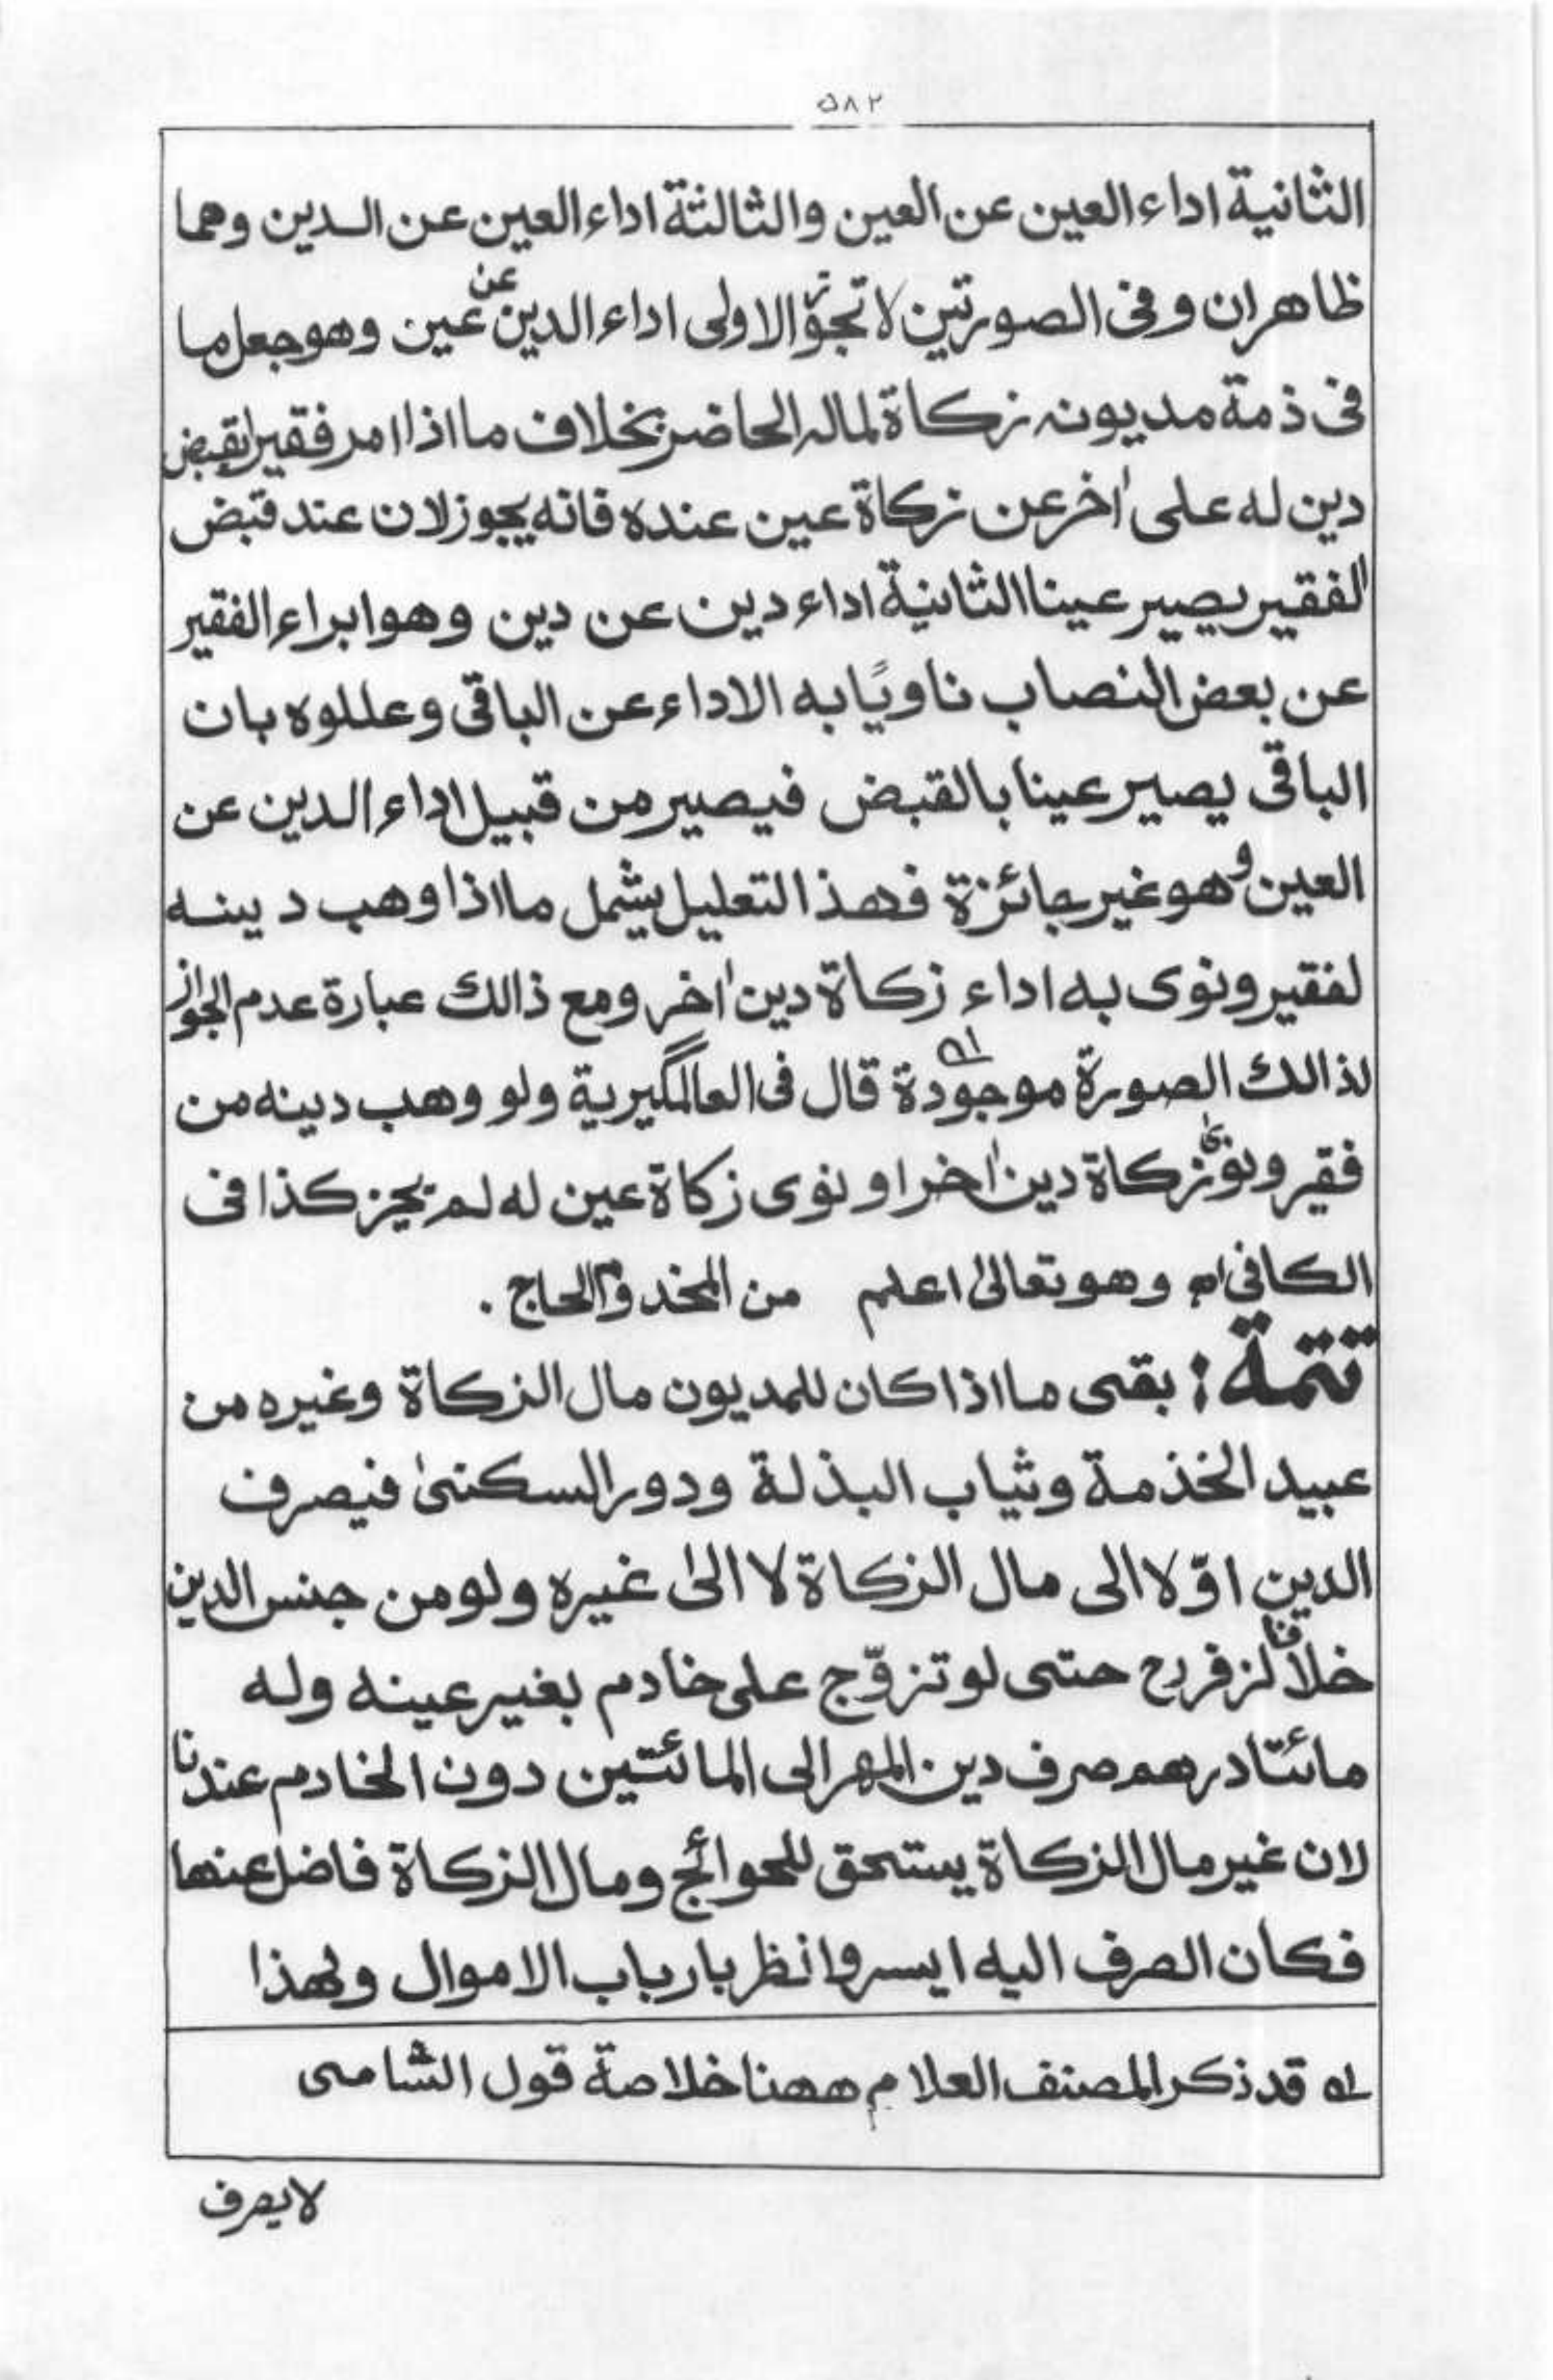 ٥٨٢
الثانية اداء العين عن العين والثالثة اداء العين عن الدين وهما
ظاهران وفى الصورتين لا تجوز الاولى اداء الدين عن عين وهو جعل ما
فى ذمة مديونه زكاة لماله الحاضر بخلاف ما اذا امر فقيرا بقبض
دين له على اٰخر عن زكاة عين عنده فانه يجوز لان عند قبض
الفقير يصير عينا الثانية اداء دين عن دين وهو ابراء الفقير
عن بعض النصاب ناويًا به الاداء عن الباقى وعللوه بان
الباقى يصير عينا بالقبض فيصير من قبيل اداء الدين عن
العين وهو غير جائزة فهذا التعليل يشمل ما اذا وهب دينه
لفقير ونوى به اداء زكاة دين اٰخر ومع ذالك عبارة عدم الجواز
لذالك الصورة موجودة ١ه قال فى العالمگيرية ولو وهب دينه من
فقير ونوىٰ زكاة دين اٰخر او نوى زكاة عين له لم يجز كذا فى
الكافى اه وهو تعالىٰ اعلم من المخدوم الحاج .
تتمة : بقى ما اذا كان للمديون مال الزكاة وغيره من
عبيد الخذمة وثياب البذلة ودور السكنىٰ فيصرف
الدين اوّلا الى مال الزكاة لا الىٰ غيره ولو من جنس الدين
خلافا لزفر رح حتى لو تزوّج على خادم بغير عينه وله
مائتا درهم صرف دين المهر الى المائتين دون الخادم عندنا
لان غير مال الزكاة يستحق للحوائج ومال الزكاة فاضل عنها
فكان الصرف اليه ايسر وانظر بارباب الاموال ولهذا
١ه قد ذكر المصنف العلام ههنا خلاصة قول الشامى
لا يصرف